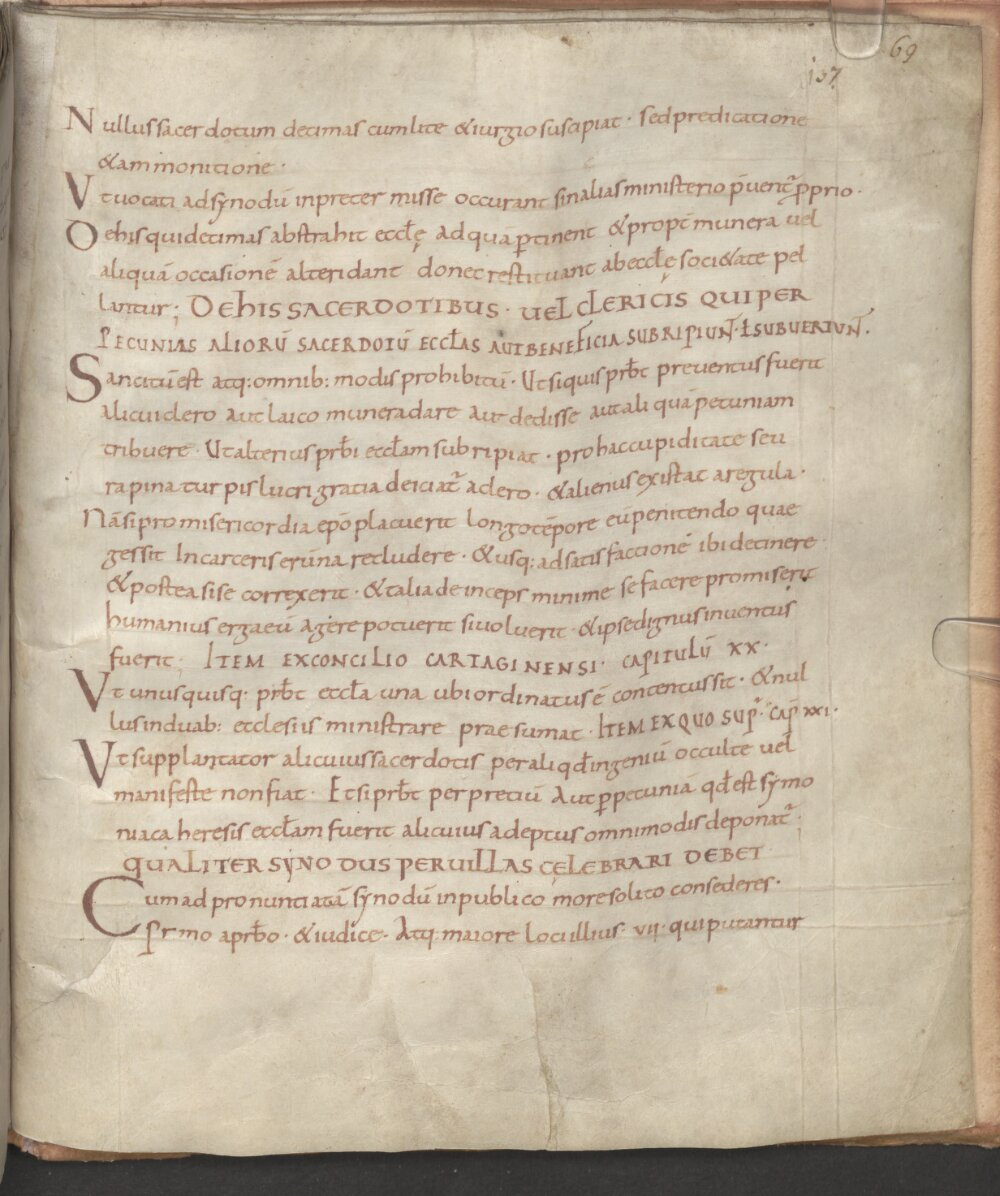 69
137
Nullus sacerdotum decimas cum lite & iurgio suscipiat · sed predicatione
& ammonitione ·
Vt uocati ad synodū inpreter misse occurant sin alias ministerio p̄uent᷑ p̱prio ·
De his qui decimas abstrahit eccłę ad quā ꝑtinent & propt̄ munera uel
aliquā occasionē alteri dant donec restituant ab eccłę soci&ate pel
lantur ; DE hIS SACERDOTIBUS · UEL CLERICIS QUI PER
PECUNIAS ALIORŪ SACERDOTŪ ECCŁAS AUT BENEFICIA SUBRIPIUNT̄ · Ł SUBUERTUNT̄ ·
Sancitū est atq; omnib; modis prohibitū · Ut si quis prƀt preuentus fuerit
alicui clero aut laico munera dare aut dedisse aut ali quā pecuniam
tribuere · Ut alterius prƀi eccłam subripiat · pro hac cupiditate seu
rapina turpis lucri gratia deiciat᷑ a clero · & alienus existat a regula ·
Nā si pro misericordia ep̄o placuerit longo tēpore eū penitendo quae
gessit In carceris erūna recludere · & usq; ad satisfaccionē ibi detinere
& postea si se correxerit · & talia deinceps minime se facere promiserit
humanius erga eū agere potuerit si uoluerit · & ipse dignus inuentus
fuerit ; ITEM EX CONCILIO CARTAGINENSI · CAPITULŪ XX ·
Vt unusquisq· prƀt eccła una ubi ordinatus ē contentus sit · & nul
lus in duab; ecclesiis ministrare praesumat · ITEM EX QUO SUP̄ · CAP̄ XXI ·
Vt supplantator alicuius sacerdotis per aliqđ ingeniū occulte uel
manifeste non fiat · Et si prƀt per pretiū Aut ꝑ pecuniā qđ est symo
niaca heresis eccłam fuerit alicuius adeptus omnimodis deponat᷑ ·
QUALITER SYNODUS PER UILLAS CELEBRARI DEBET
Cum ad pronunciatā synodū in publico more solito consederes ·
Primo a prƀo · & iudice · Atq; maiore loci illius · VII · qui putantur